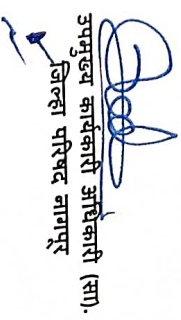 उपमुख्य कार्यकारी अधिकारी (सा).
जिल्हा परिषद नागपूर